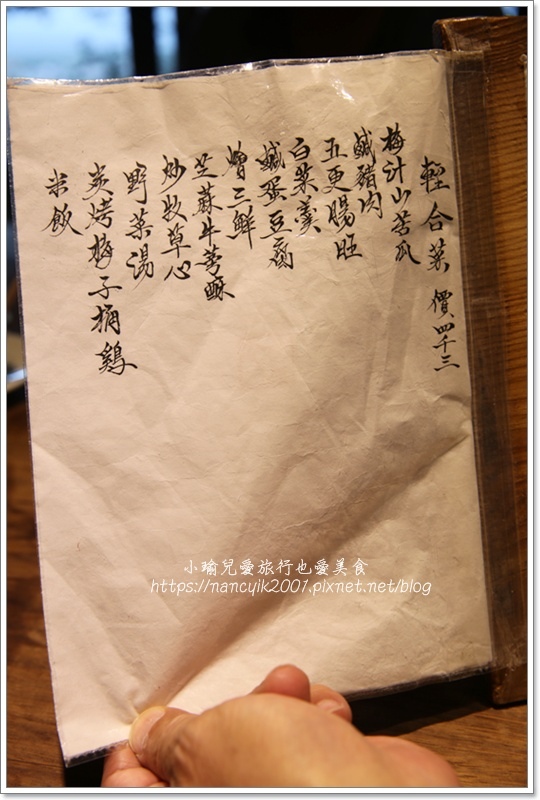 輕合菜 價四千三
梅汁山苦瓜
鹹豬肉
五更腸旺
白菜羹
鹹蛋豆腐
燴三鮮
芝蔴牛蒡酥
炒牧草心
野菜湯
炭烤梅子桶鷄
米飯
小瑜兒愛旅行也愛美食
https://nancyik2001.pixnet.net/blog